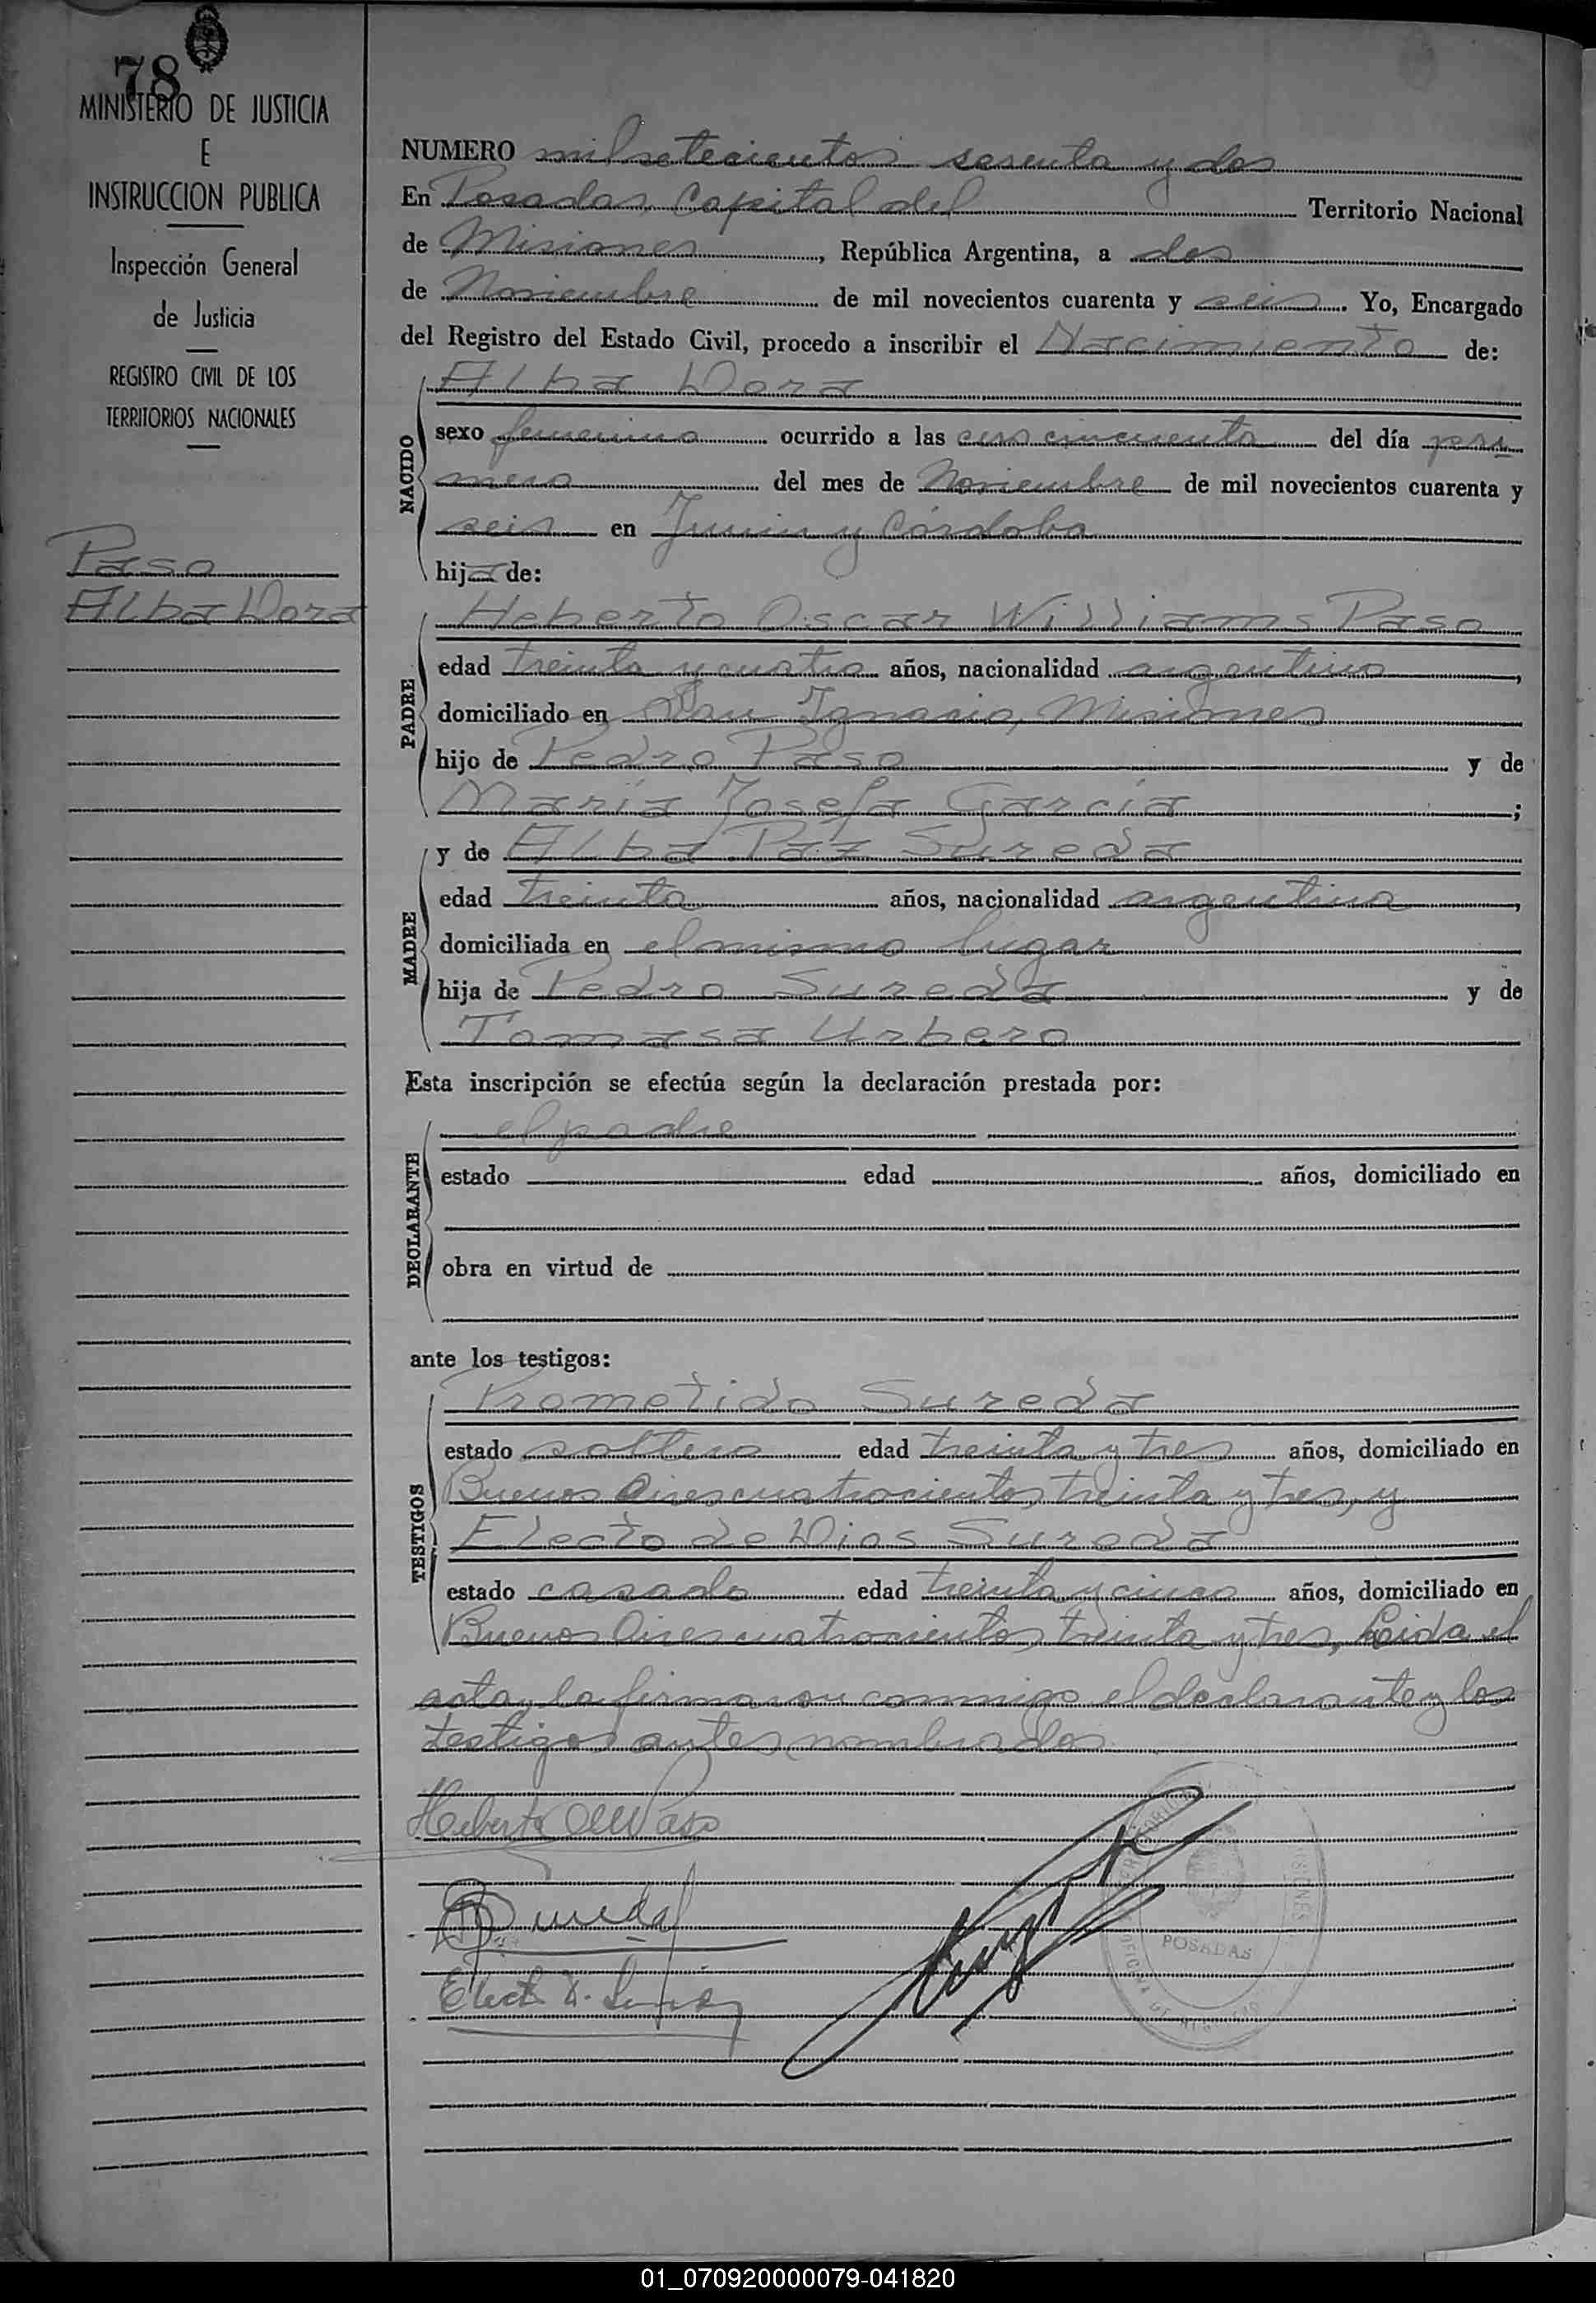 78
MINISTERIO DE JUSTICIA
E
INSTRUCCION PUBLICA
Inspección General
de Justicia
REGISTRO CIVIL DE LOS
TERRITORIOS NACIONALES
Paso
Alba Dora
NUMERO mil setecientos sesenta y dos
En Posadas, Capital del Territorio Nacional
de Misiones, República Argentina, a dos
de Noviembre de mil novecientos cuarenta y seis. Yo, Encargado
del Registro del Estado Civil, procedo a inscribir el Nacimiento de:
NACIDO
Alba Dora
sexo femenino ocurrido a las cero cincuenta del día pri
mero del mes de Noviembre de mil novecientos cuarenta y
seis en Junin y Córdoba
hija de:
PADRE
Heberto Oscar Williams Paso
edad treinta y cuatro años, nacionalidad argentino,
domiciliado en San Ignacio, Misiones
hijo de Pedro Paso y de
María Josefa García;
MADRE
y de Alba Paz Sureda
edad treinta años, nacionalidad argentina,
domiciliada en el mismo lugar
hija de Pedro Sureda y de
Tomasa Urbero
Esta inscripción se efectúa según la declaración prestada por:
DECLARANTE
el padre
estado edad años, domiciliado en
obra en virtud de
ante los testigos:
TESTIGOS
Prometido Sureda
estado soltero edad treinta y tres años, domiciliado en
Buenos Aires cuatrocientos treinta y tres, y
Electo de Dios Sureda
estado casado edad treinta y cinco años, domiciliado en
Buenos Aires cuatrocientos treinta y tres, Leida el
acta, la firmaron conmigo el declarante y los
testigos antes nombrados
Heberto OW Paso
POSADAS
01_070920000079-041820